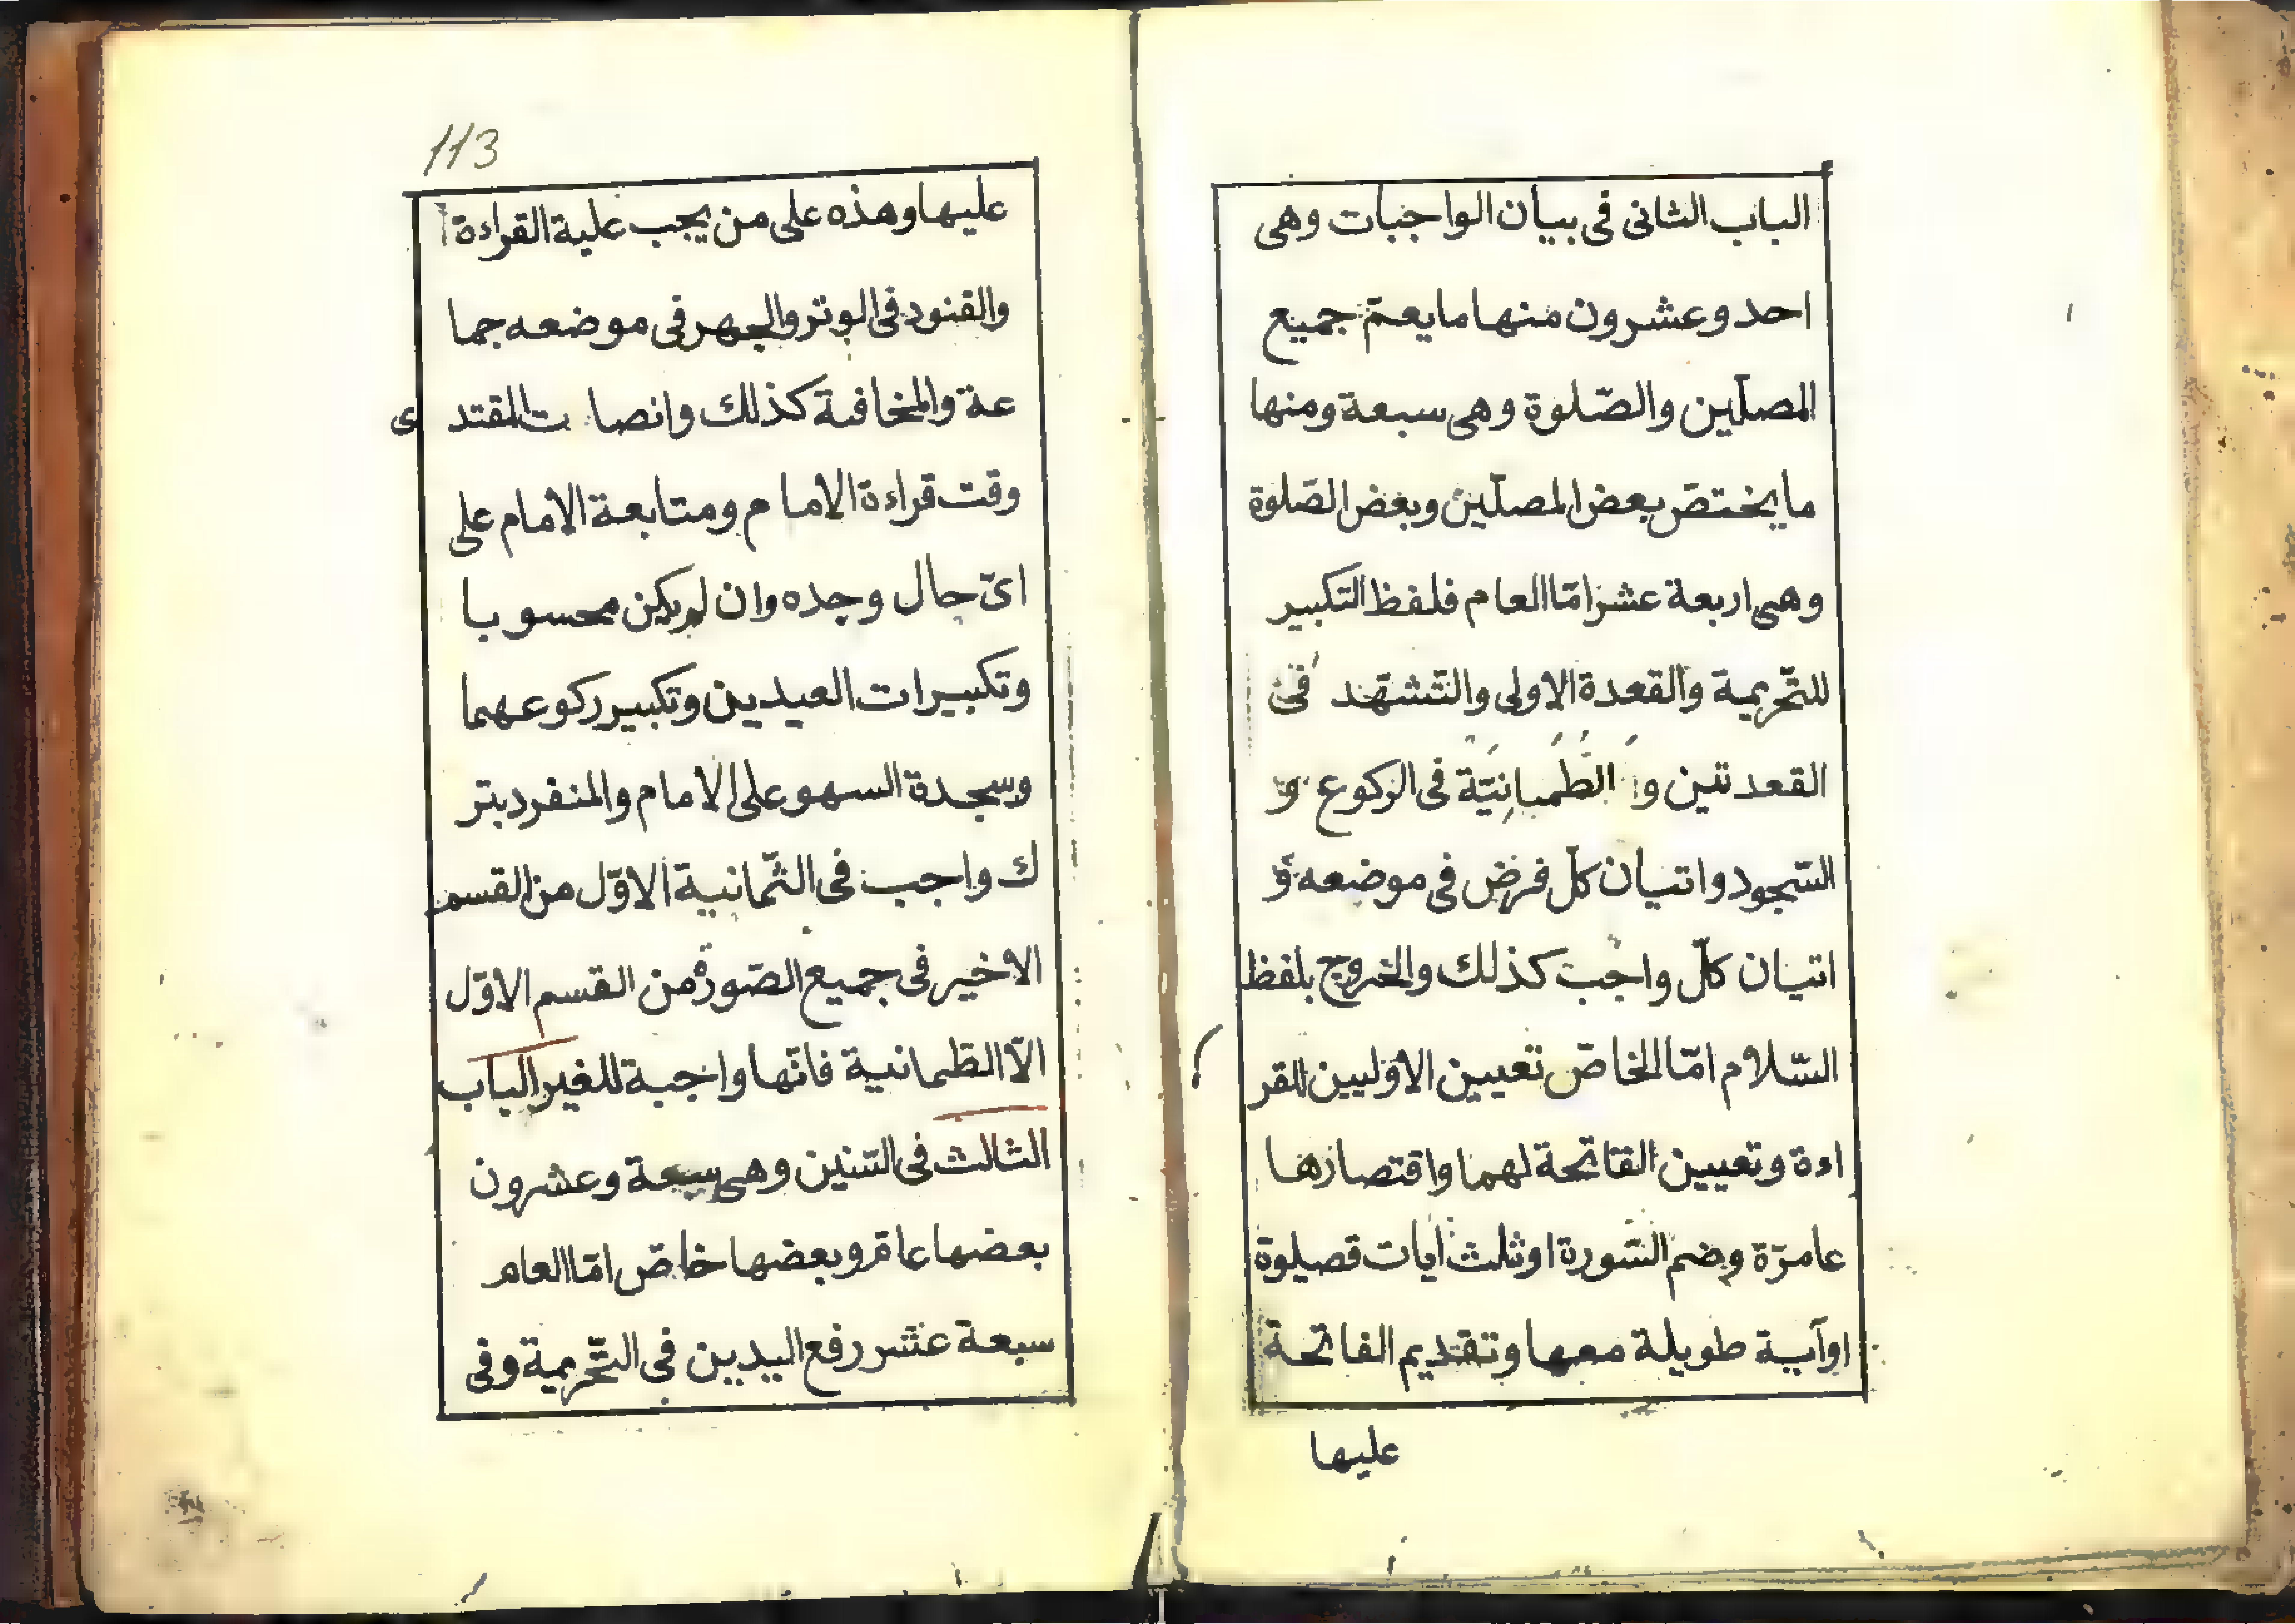 الباب الثانى فى بيان الواجبات وهى
احد وعشرون منها ما يعمّ جميع
المصلّين والصّلوة وهى سبعة ومنها
ما يختصّ بعض المصلّين وبعض الصّلوة
وهى اربعة عشر امّا العام فلفظ التكبير
للتّحريمة والقعدة الاولى والتّشهّد فى
القعدتين و الطّمبانِيّة فى الركوع و
السّجود واتيان كلّ فرض فى موضعه و
اتيان كلّ واجب كذلك والخروج بلفظ
السّلام امّا الخاصّ تعيين الاوليين للقر
اءة وتعيين الفاتحة لهما واقتصارها
عامرّة وضم السّورة او ثلث ايات قصيلوة
اوآية طويلة معها وتقديم الفاتحة
عليها
113
عليها وهذه على من يجب علية القراءة
والقنود فى الوتر والجهر فى موضعه جما
عة والمخافة كذلك وانصات المقتدى
وقت قراءة الامام ومتابعة الامام على
اىّ حال وجده وان لم يكن محسوبا
وتكبيرات العيدين وتكبير ركوعهما
وسجدة السهو على الامام والمنفرد بتر
ك واجب فى الثّمانية الاوّل من القسم
الاخير فى جميع الصّورة من القسم الاوّل
الّا الطّمانية فانّها واجبة للغير الباب
الثالث فى السّنين وهى سبعة وعشرون
بعضها عامّ وبعضها خاصّ امّا العام
سبعة عشر رفع اليدين فى التّحريمة وفى